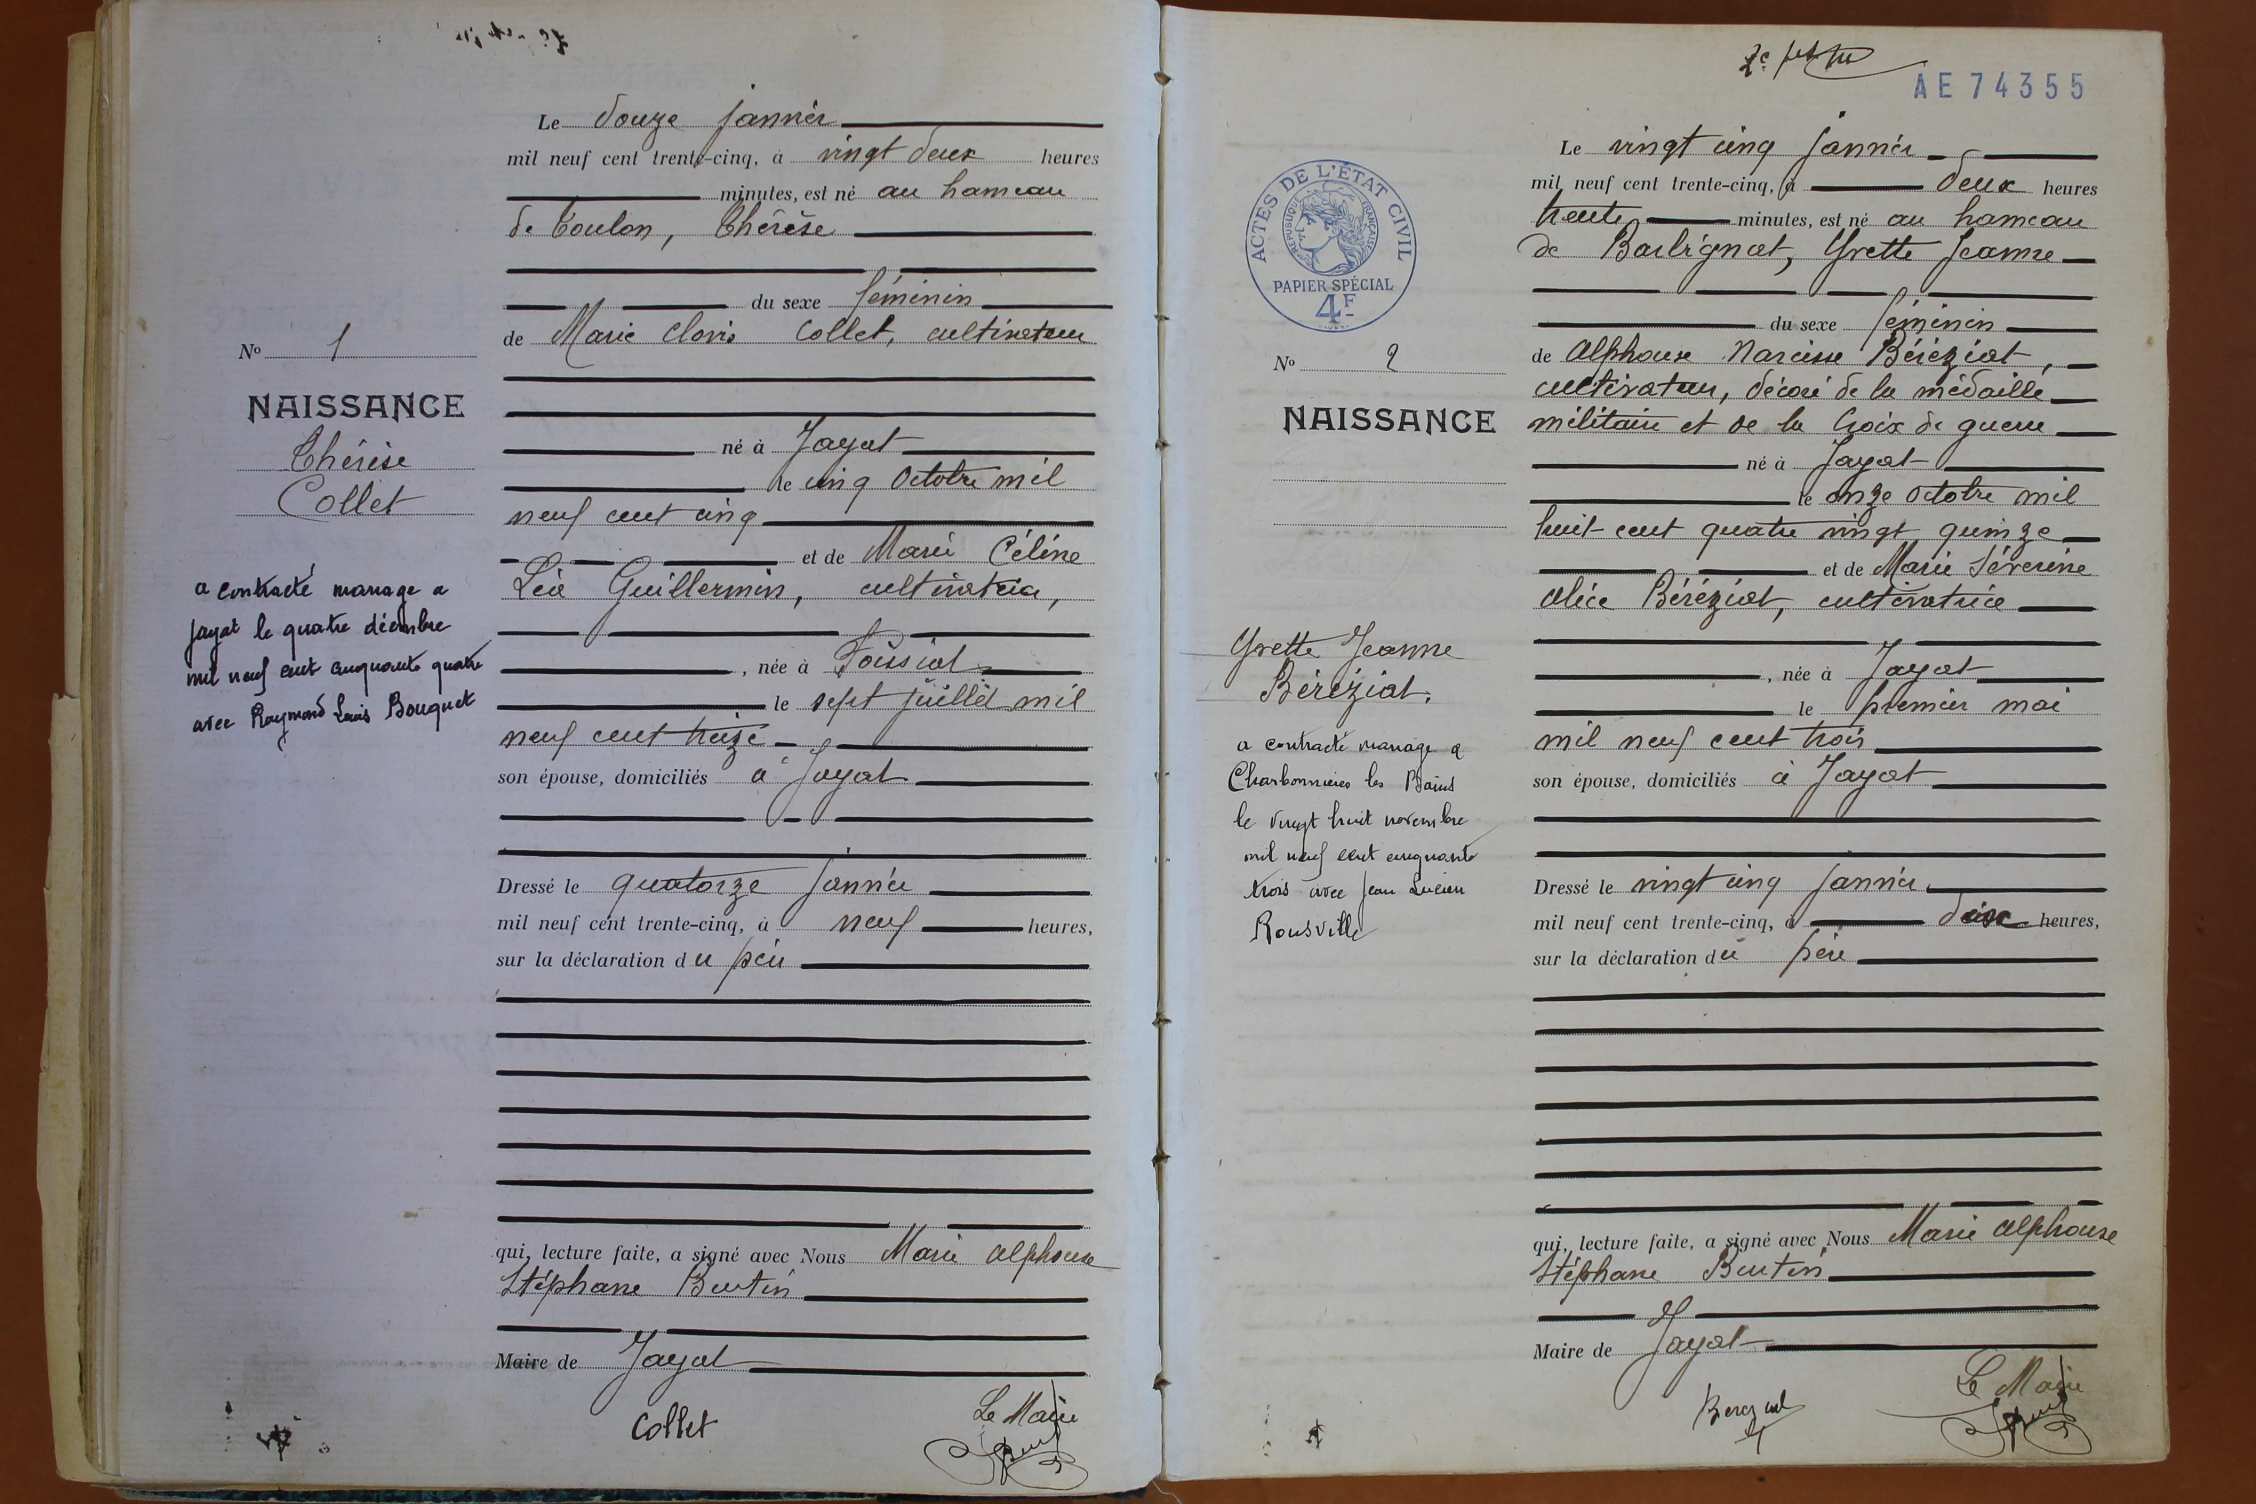 Le douze janvier
mil neuf cent trente-cinq, à vingt deux heures
minutes, est né au hameau
de Toulon, Thérèse
du sexe féminin
de Marie Clovis Collet, cultivateur
né à Jayat
le cinq Octobre mil
neuf cent cinq
et de Marie Céline
Léa Guillermin, cultivatrice,
, née à Foissiat
le sept juillet mil
neuf cent treize
son épouse, domiciliés à Jayat
Dressé le quatorze janvier
mil neuf cent trente-cinq, à neuf heures,
sur la déclaration du père
qui, lecture faite, a signé avec Nous Marie Alphonse
Stéphane Butin
Maire de Jayat
Collet
Le Maire
No 1
NAISSANCE
Thérèse
Collet
a contracté mariage a
Jayat le quatre décembre
mil neuf cent cinquante quatre
avec Raymond Louis Bouquet
2e
AE 74355
ACTES DE L'ÉTAT CIVIL
RÉPUBLIQUE FRANÇAISE
PAPIER SPÉCIAL
4F
No 2
NAISSANCE
Yvette Jeanne
Béréziat.
a contracté mariage a
Charbonnières les Bains
le vingt huit novembre
mil neuf cent cinquante
trois avec Jean Lucien
Rousville
Le vingt cinq janvier
mil neuf cent trente-cinq, à deux heures
trente minutes, est né au hameau
de Barbignat, Yvette Jeanne
du sexe féminin
de Alphonse Narcisse Béréziat,
cultivateur, décoré de la médaille
militaire et de la Croix de guerre
né à Jayat
le onze Octobre mil
huit cent quatre vingt quinze
et de Marie Séverine
Alice Béréziat, cultivatrice
, née à Jayat
le premier mai
mil neuf cent trois
son épouse, domiciliés à Jayat
Dressé le vingt cinq janvier
mil neuf cent trente-cinq, à heures,
sur la déclaration du père
qui, lecture faite, a signé avec Nous Marie Alphonse
Stéphane Butin
Maire de Jayat
Bereziat
Le Maire